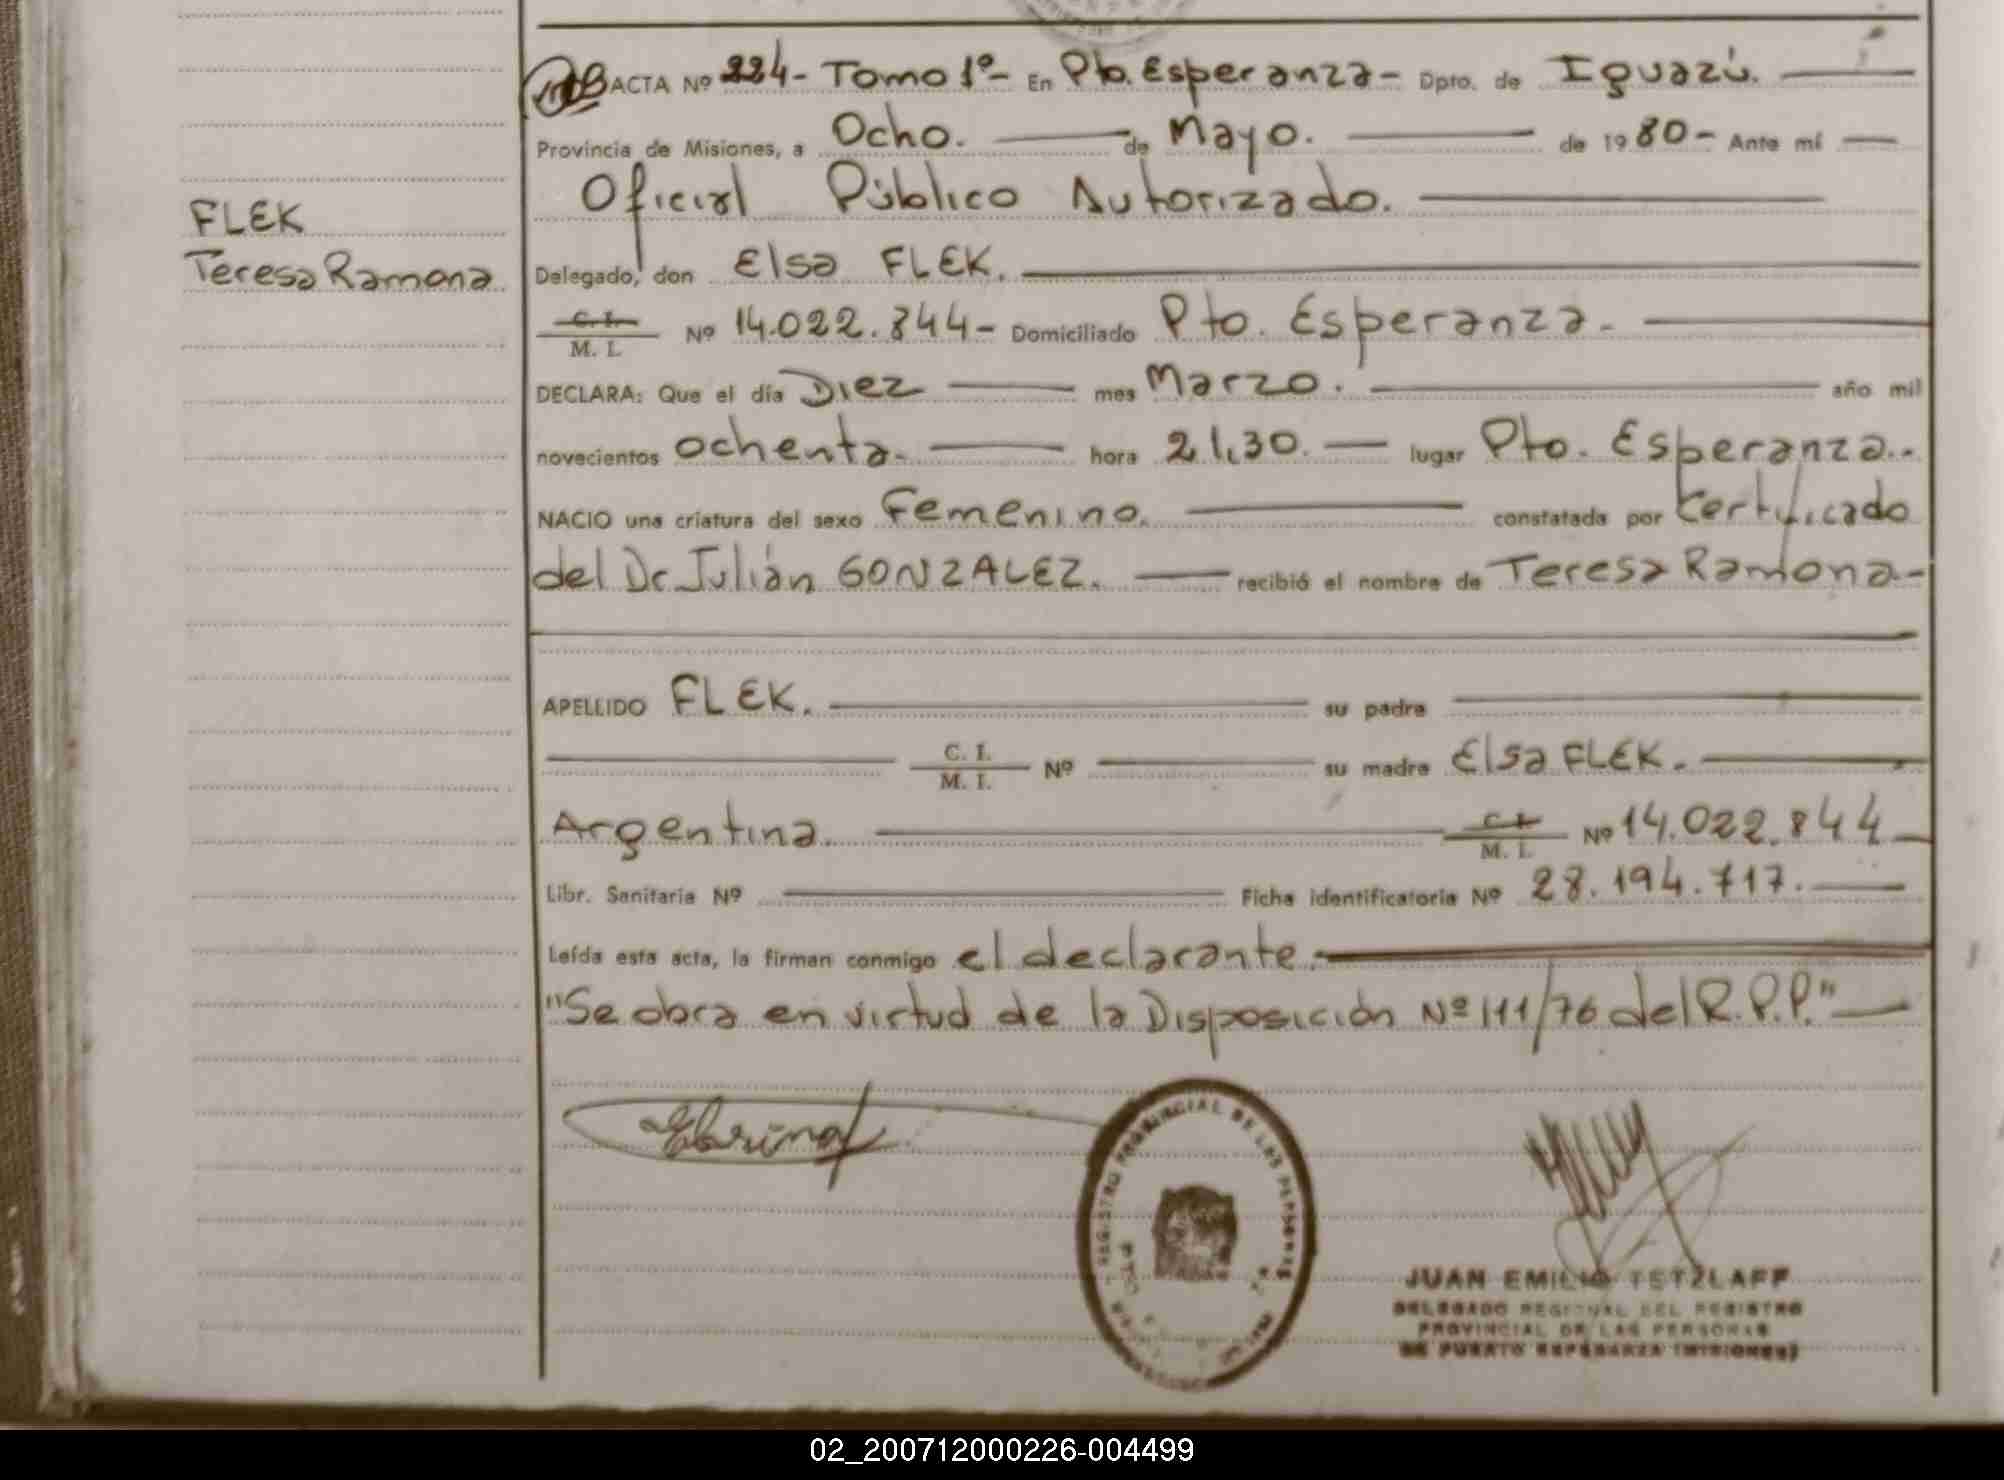 ACTA Nº 224- Tomo 1º- En Pto. Esperanza- Dpto. de Iguazú.
Provincia de Misiones, a Ocho. de Mayo. de 1980- Ante mí
Oficial Público Autorizado.
FLEK
Teresa Ramona
Delegado, don Elsa FLEK.
C. I.
M. I. Nº 14.022.844- Domiciliado Pto. Esperanza.
DECLARA: Que el día Diez mes Marzo. año mil
novecientos ochenta. hora 21,30. lugar Pto. Esperanza..
NACIO una criatura del sexo Femenino. constatada por Certificado
del Dr. Julián GONZALEZ. recibió el nombre de Teresa Ramona-
APELLIDO FLEK. su padre
C. I.
M. I. Nº su madre Elsa FLEK.
Argentina. C. I.
M. I. Nº 14.022.844
Libr. Sanitaria Nº Ficha identificatoria Nº 28.194.717.
Leída esta acta, la firman conmigo el declarante.
"Se obra en virtud de la Disposición Nº 111/76 del R.P.P."
REGISTRO PROVINCIAL DE LAS PERSONAS
JUAN EMILIO TETZLAFF
DELEGADO REGIONAL DEL REGISTRO
PROVINCIAL DE LAS PERSONAS
DE PUERTO ESPERANZA (MISIONES)
02_200712000226-004499